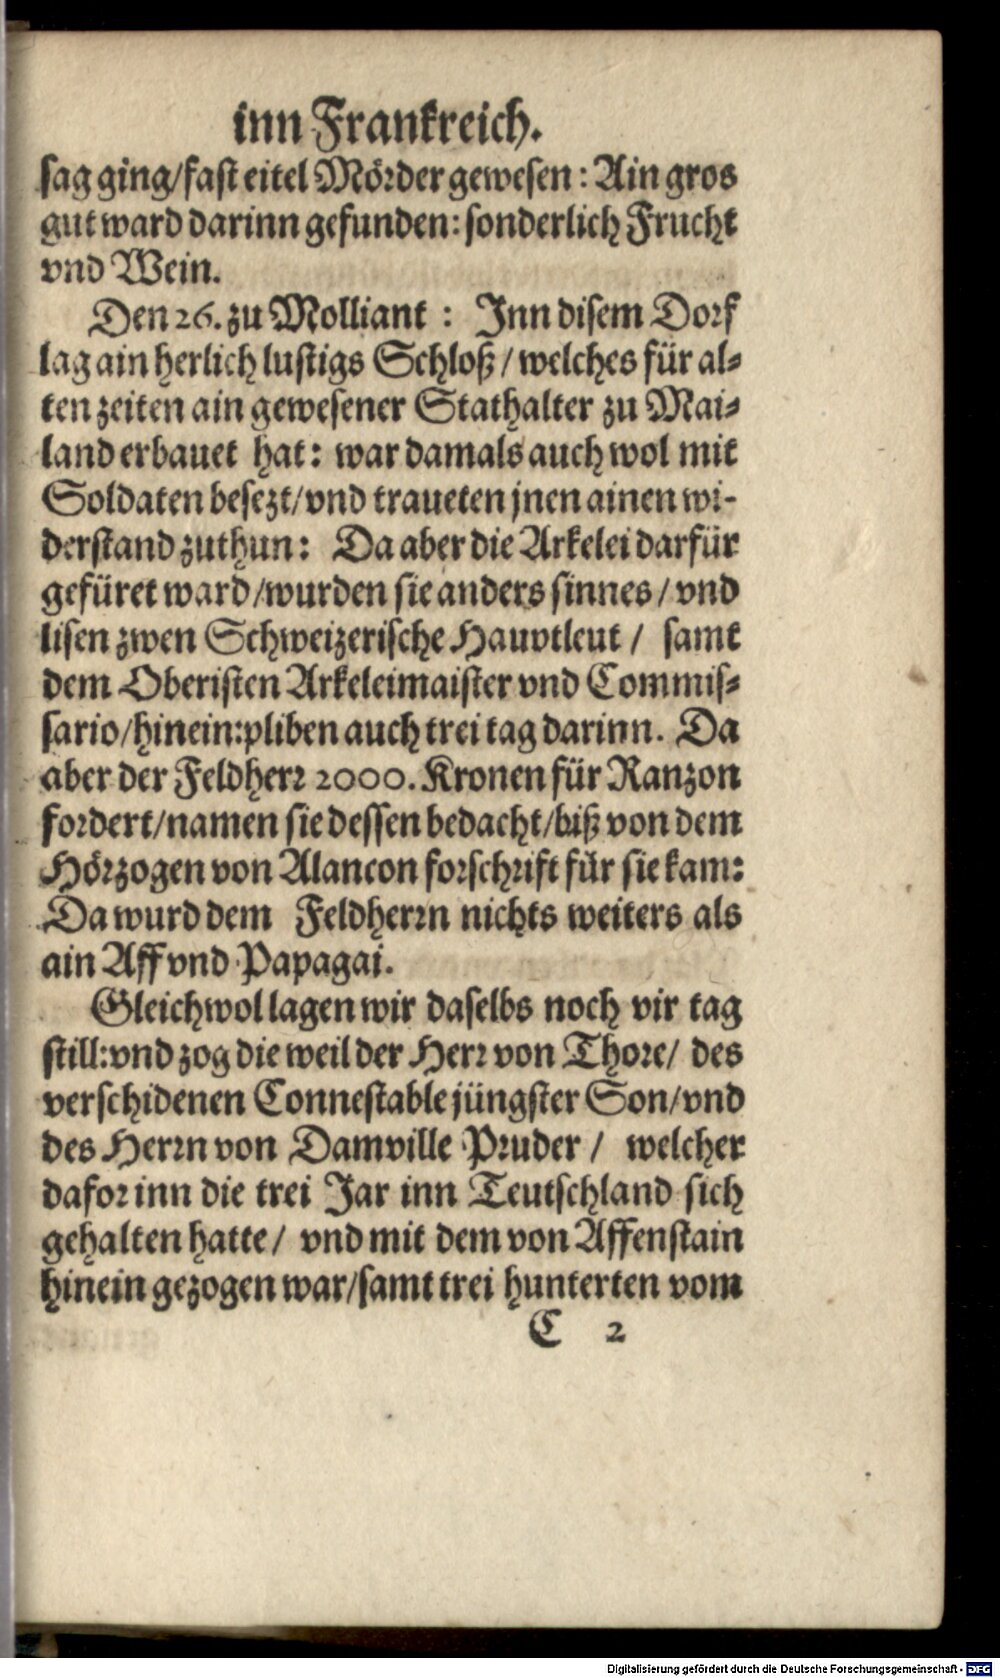 inn Frankreich.
sag ging/fast eitel Mörder gewesen: Ain gros
gut ward darinn gefunden: sonderlich Frucht
vnd Wein.
Den 26. zu Molliant : Inn disem Dorf
lag ain herlich lustigs Schloß / welches für al⸗
ten zeiten ain gewesener Stathalter zu Mai⸗
land erbauet hat: war damals auch wol mit
Soldaten besezt/vnd traueten jnen ainen wi-
derstand zuthun: Da aber die Arkelei darfür
gefüret ward/wurden sie anders sinnes / vnd
lisen zwen Schweizerische Hauptleut / samt
dem Oberisten Arkeleimaister vnd Commis⸗
sario/hinein:pliben auch trei tag darinn. Da
aber der Feldherr 2000. Kronen für Ranzon
fordert/namen sie dessen bedacht/biß von dem
Hörzogen von Alancon forschrift für sie kam:
Da wurd dem Feldherrn nichts weiters als
ain Aff vnd Papagai.
Gleichwol lagen wir daselbs noch vir tag
still:vnd zog die weil der Herr von Thore/ des
verschidenen Connestable jüngster Son/vnd
des Herrn von Damville Pruder / welcher
dafor inn die trei Jar inn Teutschland sich
gehalten hatte/ vnd mit dem von Affenstain
hinein gezogen war/samt trei hunterten vom
C 2
Digitalisierung gefördert durch die Deutsche Forschungsgemeinschaft - DFG